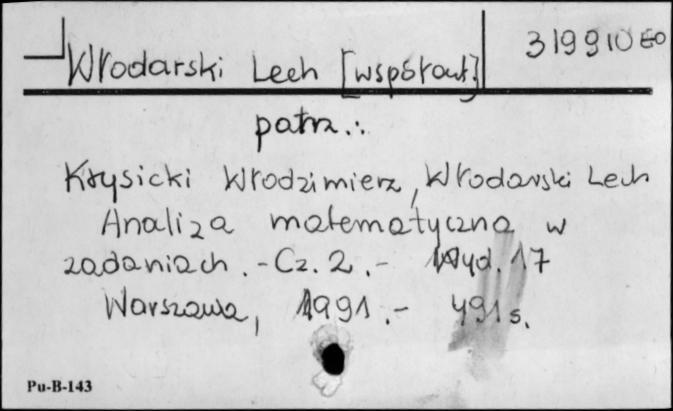 Włodarski Lech [współaut] 319910 EO
patrz.:
Krysicki Włodzimierz, Włodarski Lech
Analiza matematyczna w
zadaniach. - Cz. 2. - Wyd. 17
Warszawa, 1991. - 491 s.
Pu-B-143